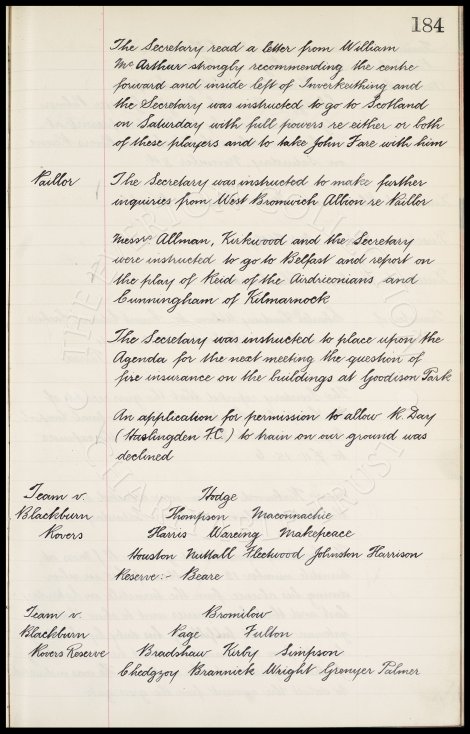 184
The Secretary read a letter from William
McArthur strongly recommending the centre
forward and inside left of Inverkeithing and
the Secretary was instructed to go to Scotland
on Saturday with full powers re either or both
of these players and to take John Fare with him
Paillor The Secretary was instructed to make further
inquiries from West Bromwich Albion re Paillor
Messrs Allman, Kirkwood and the Secretary
were instructed to go to Belfast and report on
the play of Reid of the Airdrieonians and
Cunningham of Kilmarnock
The Secretary was instructed to place upon the
Agenda for the next meeting the question of
fire insurance on the buildings at Goodison Park
An application for permission to allow R. Day
(Haslingden F.C.) to train on our ground was
declined
Team v. Hodge
Blackburn Thompson Maconnachie
Rovers Harris Wareing Makepeace
Houston Nuttall Fleetwood Johnston Harrison
Reserve:- Beare
Team v. Bromilow
Blackburn Page Fulton
Rovers Reserve Bradshaw Kirby Simpson
Chedgzoy Brannick Wright Grenyer Palmer